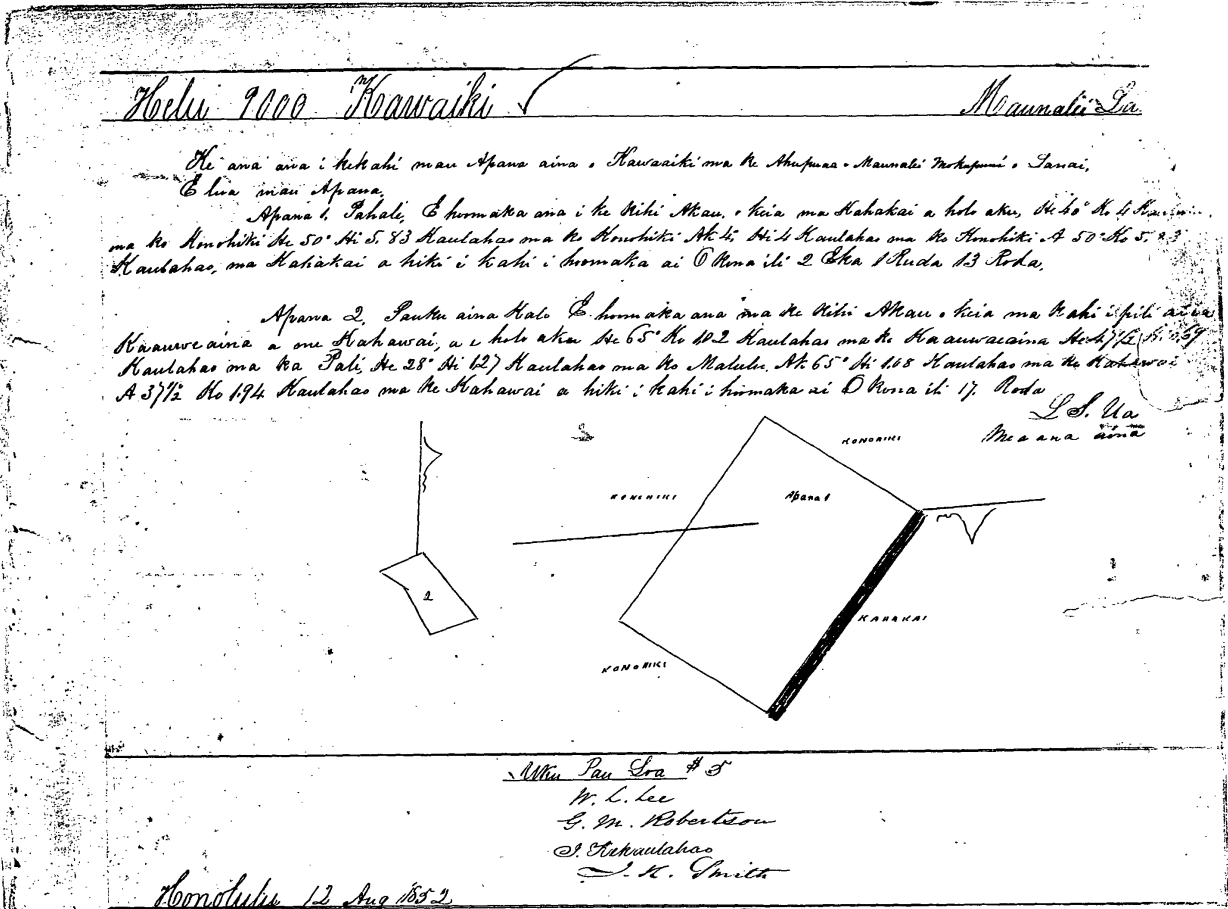 Helu 9000 Kawaiki Maunalei La
He ana ana i kekahi mau Apana aina o Kawaaiki ma ke Ahupuaa o Maunalei Mokupuni o Lanai,
E lua mau Apana,
Apana 1. Pahale, E hoomaka ana i ke Kihi Akau, o keia ma Kahakai a holo aku, He 40° Ko 4
ma ko Konohiki He 50° Hi 5.83 Kaulahao ma ko Konohiki Ak 40 Hi 4 Kaulahao ma ko Konohiki A 50° Ko 5.83
Kaulahao, ma Kahakai a hiki i kahi i hoomaka ai O kona ili 2 Eka 1 Ruda 13 Roda,
Apana 2, Pauku aina Kalo E hoomaka ana ma ke Kihi Akau o keia ma kahi i pili ai
Kaauweaina a me Kahawai, a e holo aku He 65° Ko 1.02 Kaulahao ma ke Kaauwaeaina
Kaulahao ma ka Pali, He 28° Hi 1.27 Kaulahao ma ko Malulu, Ak 65° Hi 1.08 Kaulahao ma ke Kahawai
A 37½ Ko 1.94 Kaulahao ma ke Kahawai a hiki i kahi i hoomaka ai O kona ili 17. Roda
L S. Ua
Mea ana aina
KONOHIKI
KONOHIKI
Apana 1
2
KAHAKAI
KONOHIKI
Uku Pau Loa $5
W. L. Lee
G. M. Robertson
J. Kekaulahao
J. H. Smith
Honolulu 12 Aug 1852